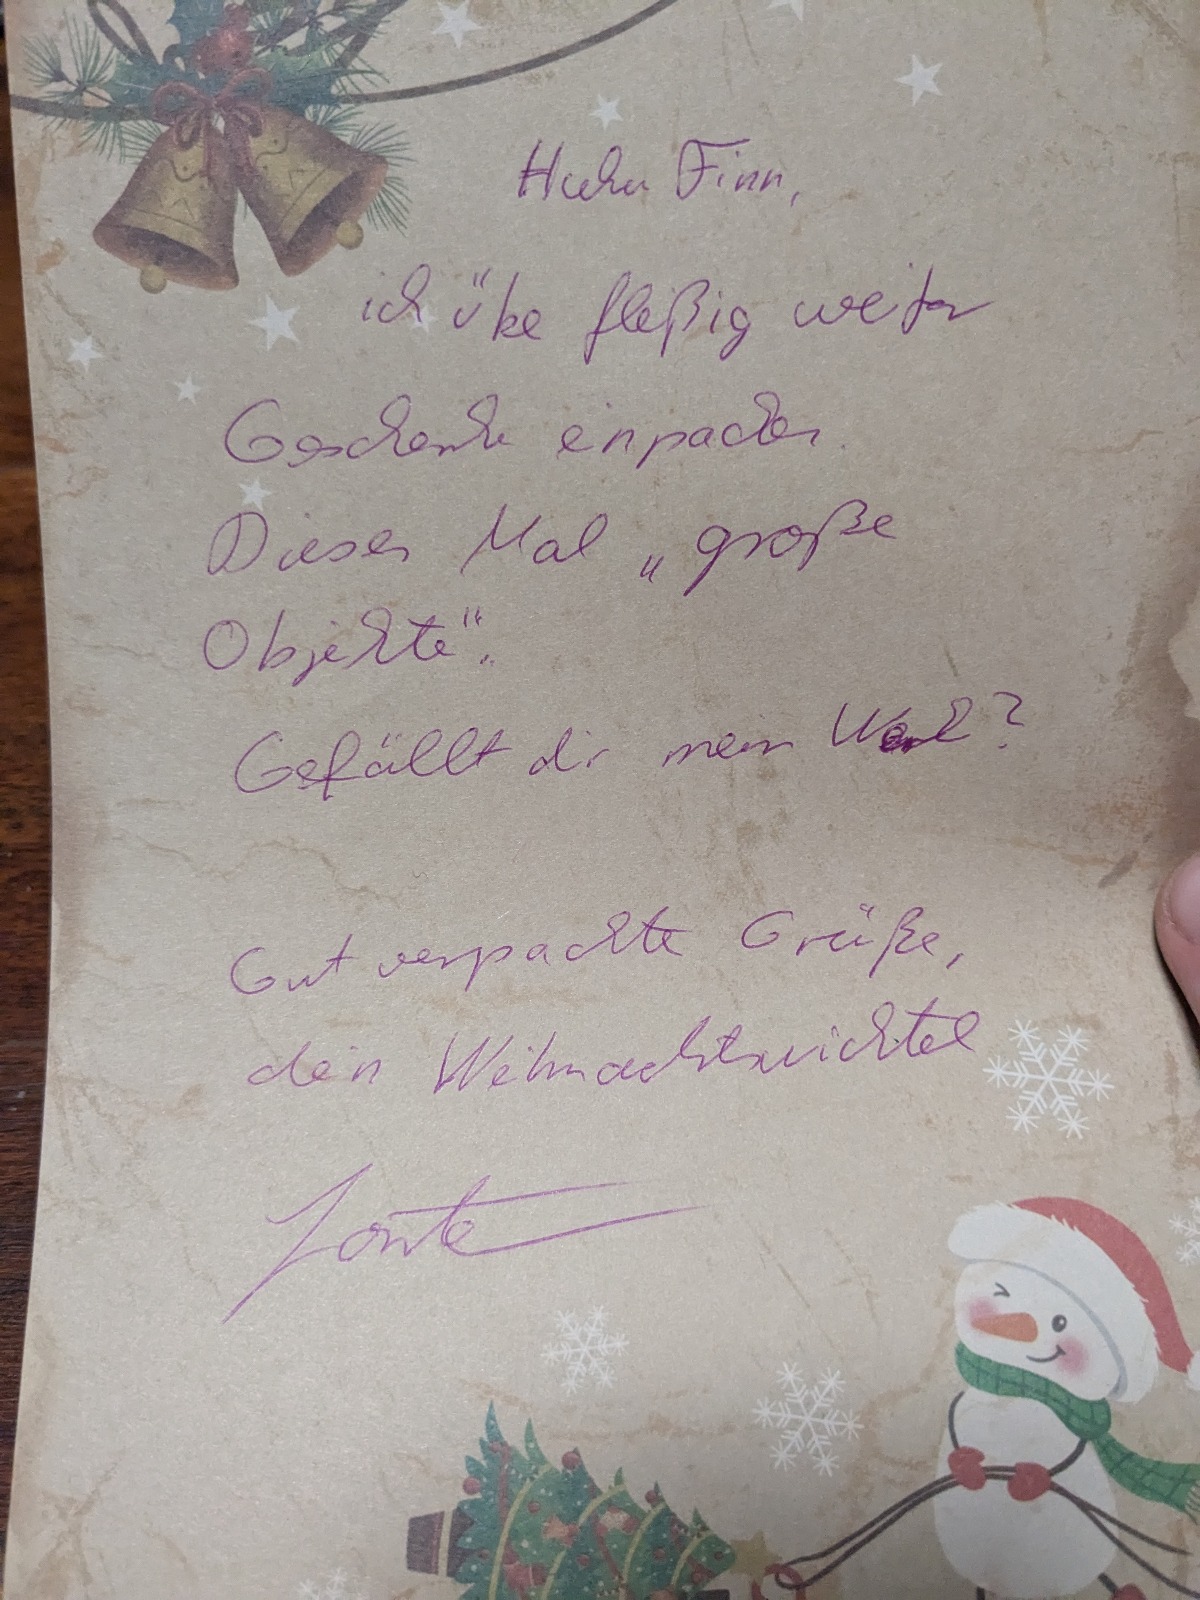 Huhu Finn,
ich übe fleißig weiter
Geschenke einpacken.
Dieses Mal „große
Objekte“.
Gefällt dir mein Werk?
Gut verpackte Grüße,
dein Weihnachtswichtel